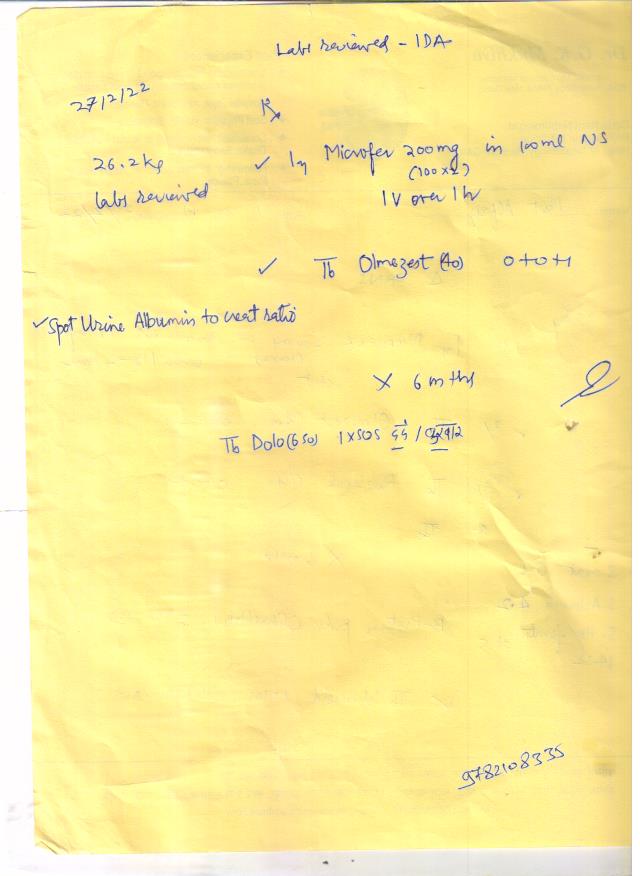 Labs reviewed - IDA
27/2/22
Rx
26.2kg
✓ Inj Microfer 200mg in 100ml NS
(100 x 2)
labs reviewed
IV over 1hr
✓ Tb Olmezest (40) 0+0+1
✓ Spot Urine Albumin to creat ratio
x 6 mths
Tb Dolo (650) 1 x SOS
9782108335